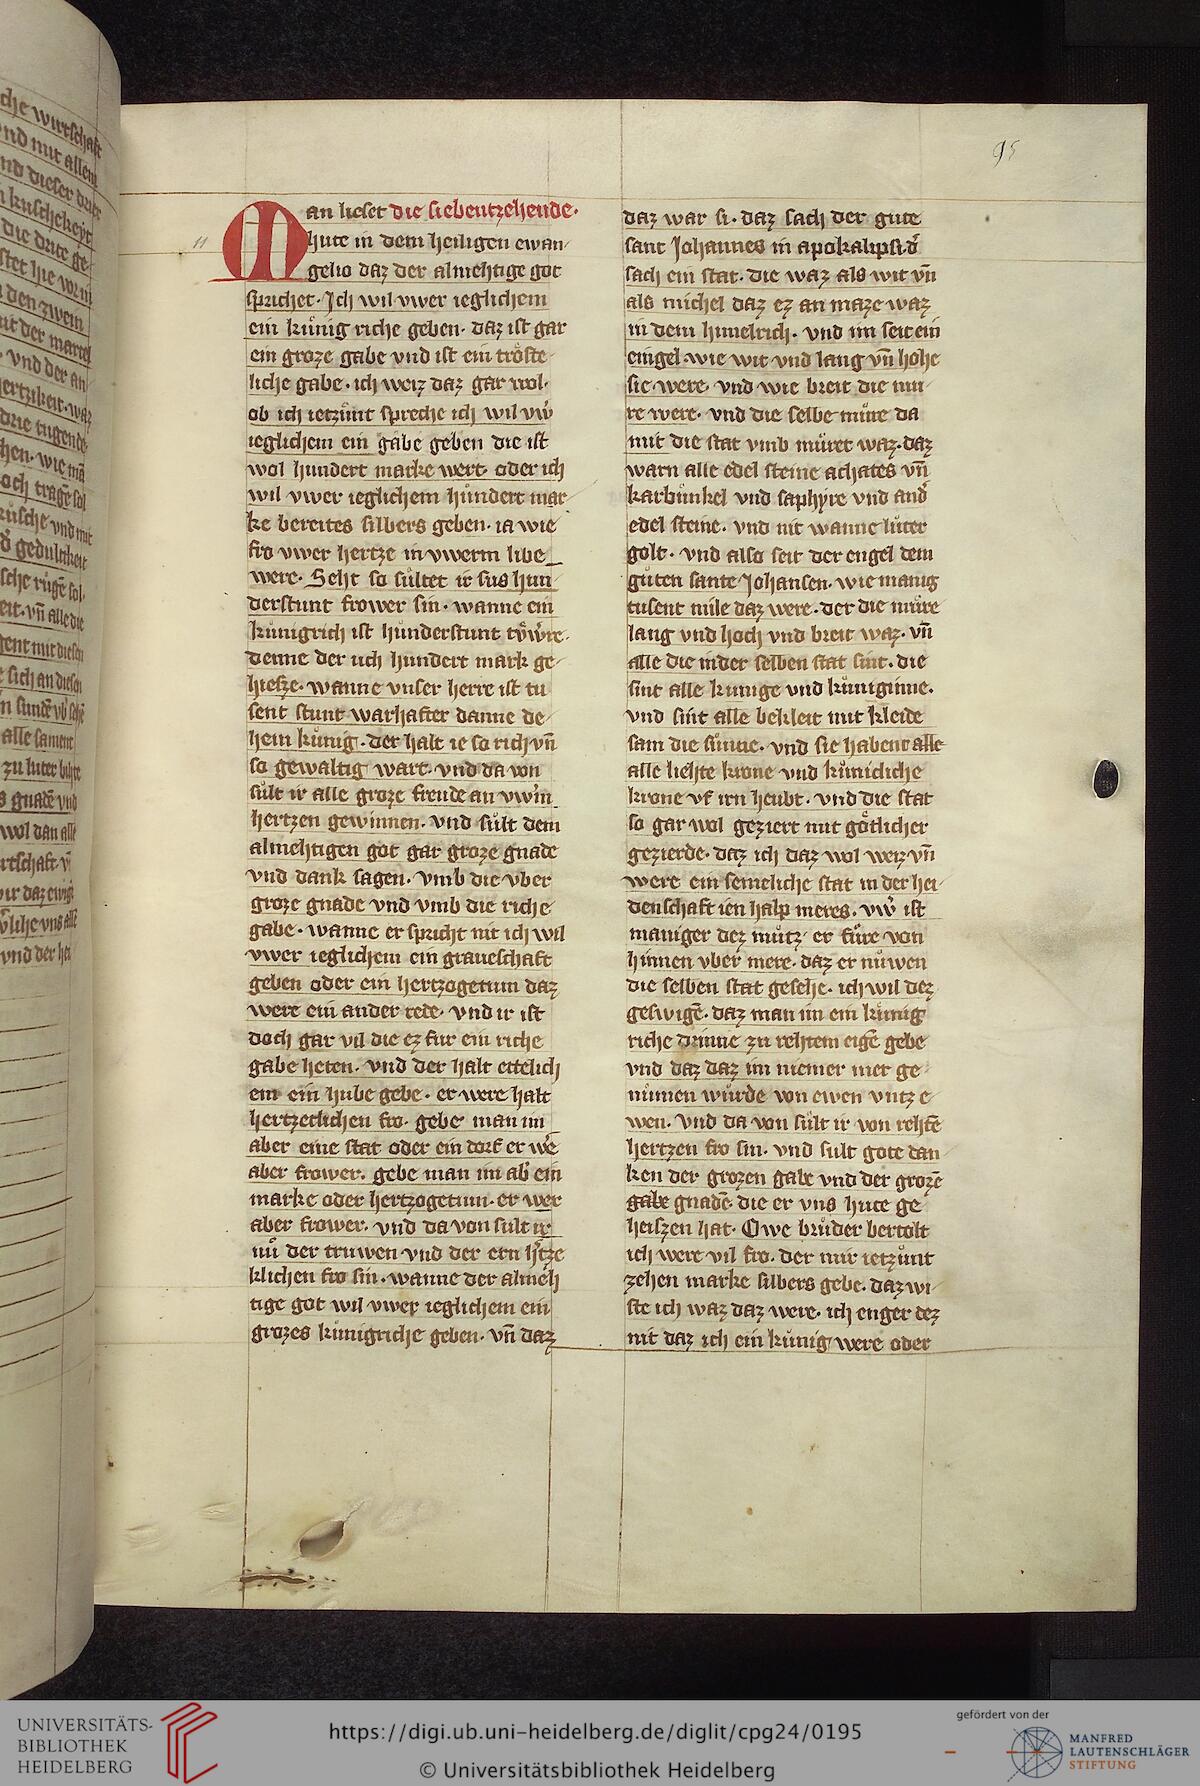 95
Man lieset die siebentzehende·
11
hute in dem heiligen ewan-
gelio daz der almehtige got
sprichet· Ich wil vwer ieglichem
ein kuͤnig riche geben· daz ist gar
ein groze gabe vnd ist ein troͤste-
liche gabe· ich weiz daz gar wol·
ob ich ietzuͤnt spreche ich wil vwͤ
ieglichem ein gabe geben die ist
wol hundert marke wert· oder ich
wil vwer ieglichem huͤndert mar-
ke bereites silbers geben· ia wie
fro vwer hertze in vwerm libe
were· Seht so suͤltet ir sus hun-
derstunt frower sin· wanne ein
kuͤnigrich ist huͤnderstunt
denne der uch hundert mark ge-
hiesze· wanne vnser herre ist tu
sent stunt warhafter danne de-
hein kuͤnig· der halt ie so rich vn̄
so gewaltig wart· vnd da von
suͤlt ir alle groze freude an vwͤm
hertzen gewinnen· vnd suͤlt dem
almehtigen got gar groze gnade
vnd dank sagen· vmb die vber
groze gnade vnd vmb die riche
gabe· wanne er spricht nit ich wil
vwer ieglichem ein graueschaft
geben oder ein hertzogetum daz
were ein ander rede· vnd ir ist
doch gar vil die ez fur ein riche
gabe heten· vnd der halt ettelich
em ein hube gebe· er were halt
hertzetlichen fro· gebe man im
aber eine stat oder ein dorf er wͤe
aber frower· gebe man im abͤ ein
marke oder hertzogetum· er wer
aber frower· vnd da von sult ir
nuͤ der truwen vnd der ern hͤtze
klichen fro sin· wanne der almeh
tige got wil vwer ieglichem ein
grozes kuͤnigriche geben· vn̄ daz
daz war si· daz sach der gute
sant Johannes in apokalipsi· dͤ
sach ein stat· die waz als wit vn̄
als michel daz ez an maze waz
in dem himelrich· vnd im seit ein
eingel wie wit vnd lang vn̄ hohe
sie were· vnd wie breit die mu-
re were· vnd die selbe muͤre da
mit die stat vmb muͤret waz· daz
warn alle edel steine achates vn̄
karbuͤnkel vnd saphyre vnd andͤ
edel steine· vnd nit wanne luͤter
golt· vnd also seit der engel dem
guͤten sante Johansen· wie manig
tusent mile daz were· der die muͤre
lang vnd hoch vnd breit waz· vn̄
alle die in der selben stat sint· die
sint alle kunige vnd kuͤniginne·
vnd sint alle bekleit mit kleide
sam die suͤnne· vnd sie habent alle
alle liehte krone vnd kuͤnicliche
krone vf irn heubt· vnd die stat
so gar wol geziert mit goͤtlicher
gezierde· daz ich daz wol weiz vn̄
were ein semeliche stat in der hei-
denschaft ien halp meres· vwͤ ist
maniger dez muͤtz er fuͤre von
hinnen vber mere· daz er nuͤwen
die selben stat gesehe· ich wil dez
geswigē· daz man im ein kuͤnig
riche drinne zu rehtem eigē gebe
vnd daz daz im niemer mer ge-
nuͤmen wuͤrde von ewen vntz e
wen· vnd da von suͤlt ir von rehtē
hertzen fro sin· vnd sult gote dan-
ken der grozen gabe vnd der grozē
gabe gnadē· die er vns hute ge
heiszen hat· Owe bruͤder bertolt
ich were vil fro· der mir ietzuͤnt
zehen marke silbers gebe· daz wi-
ste ich waz daz were· ich enger dez
nit daz ich ein kuͤnig were oder
UNIVERSITÄTS-
BIBLIOTHEK
HEIDELBERG
https://digi.ub.uni-heidelberg.de/diglit/cpg24/0195
© Universitätsbibliothek Heidelberg
gefördert von der
MANFRED
LAUTENSCHLÄGER
STIFTUNG